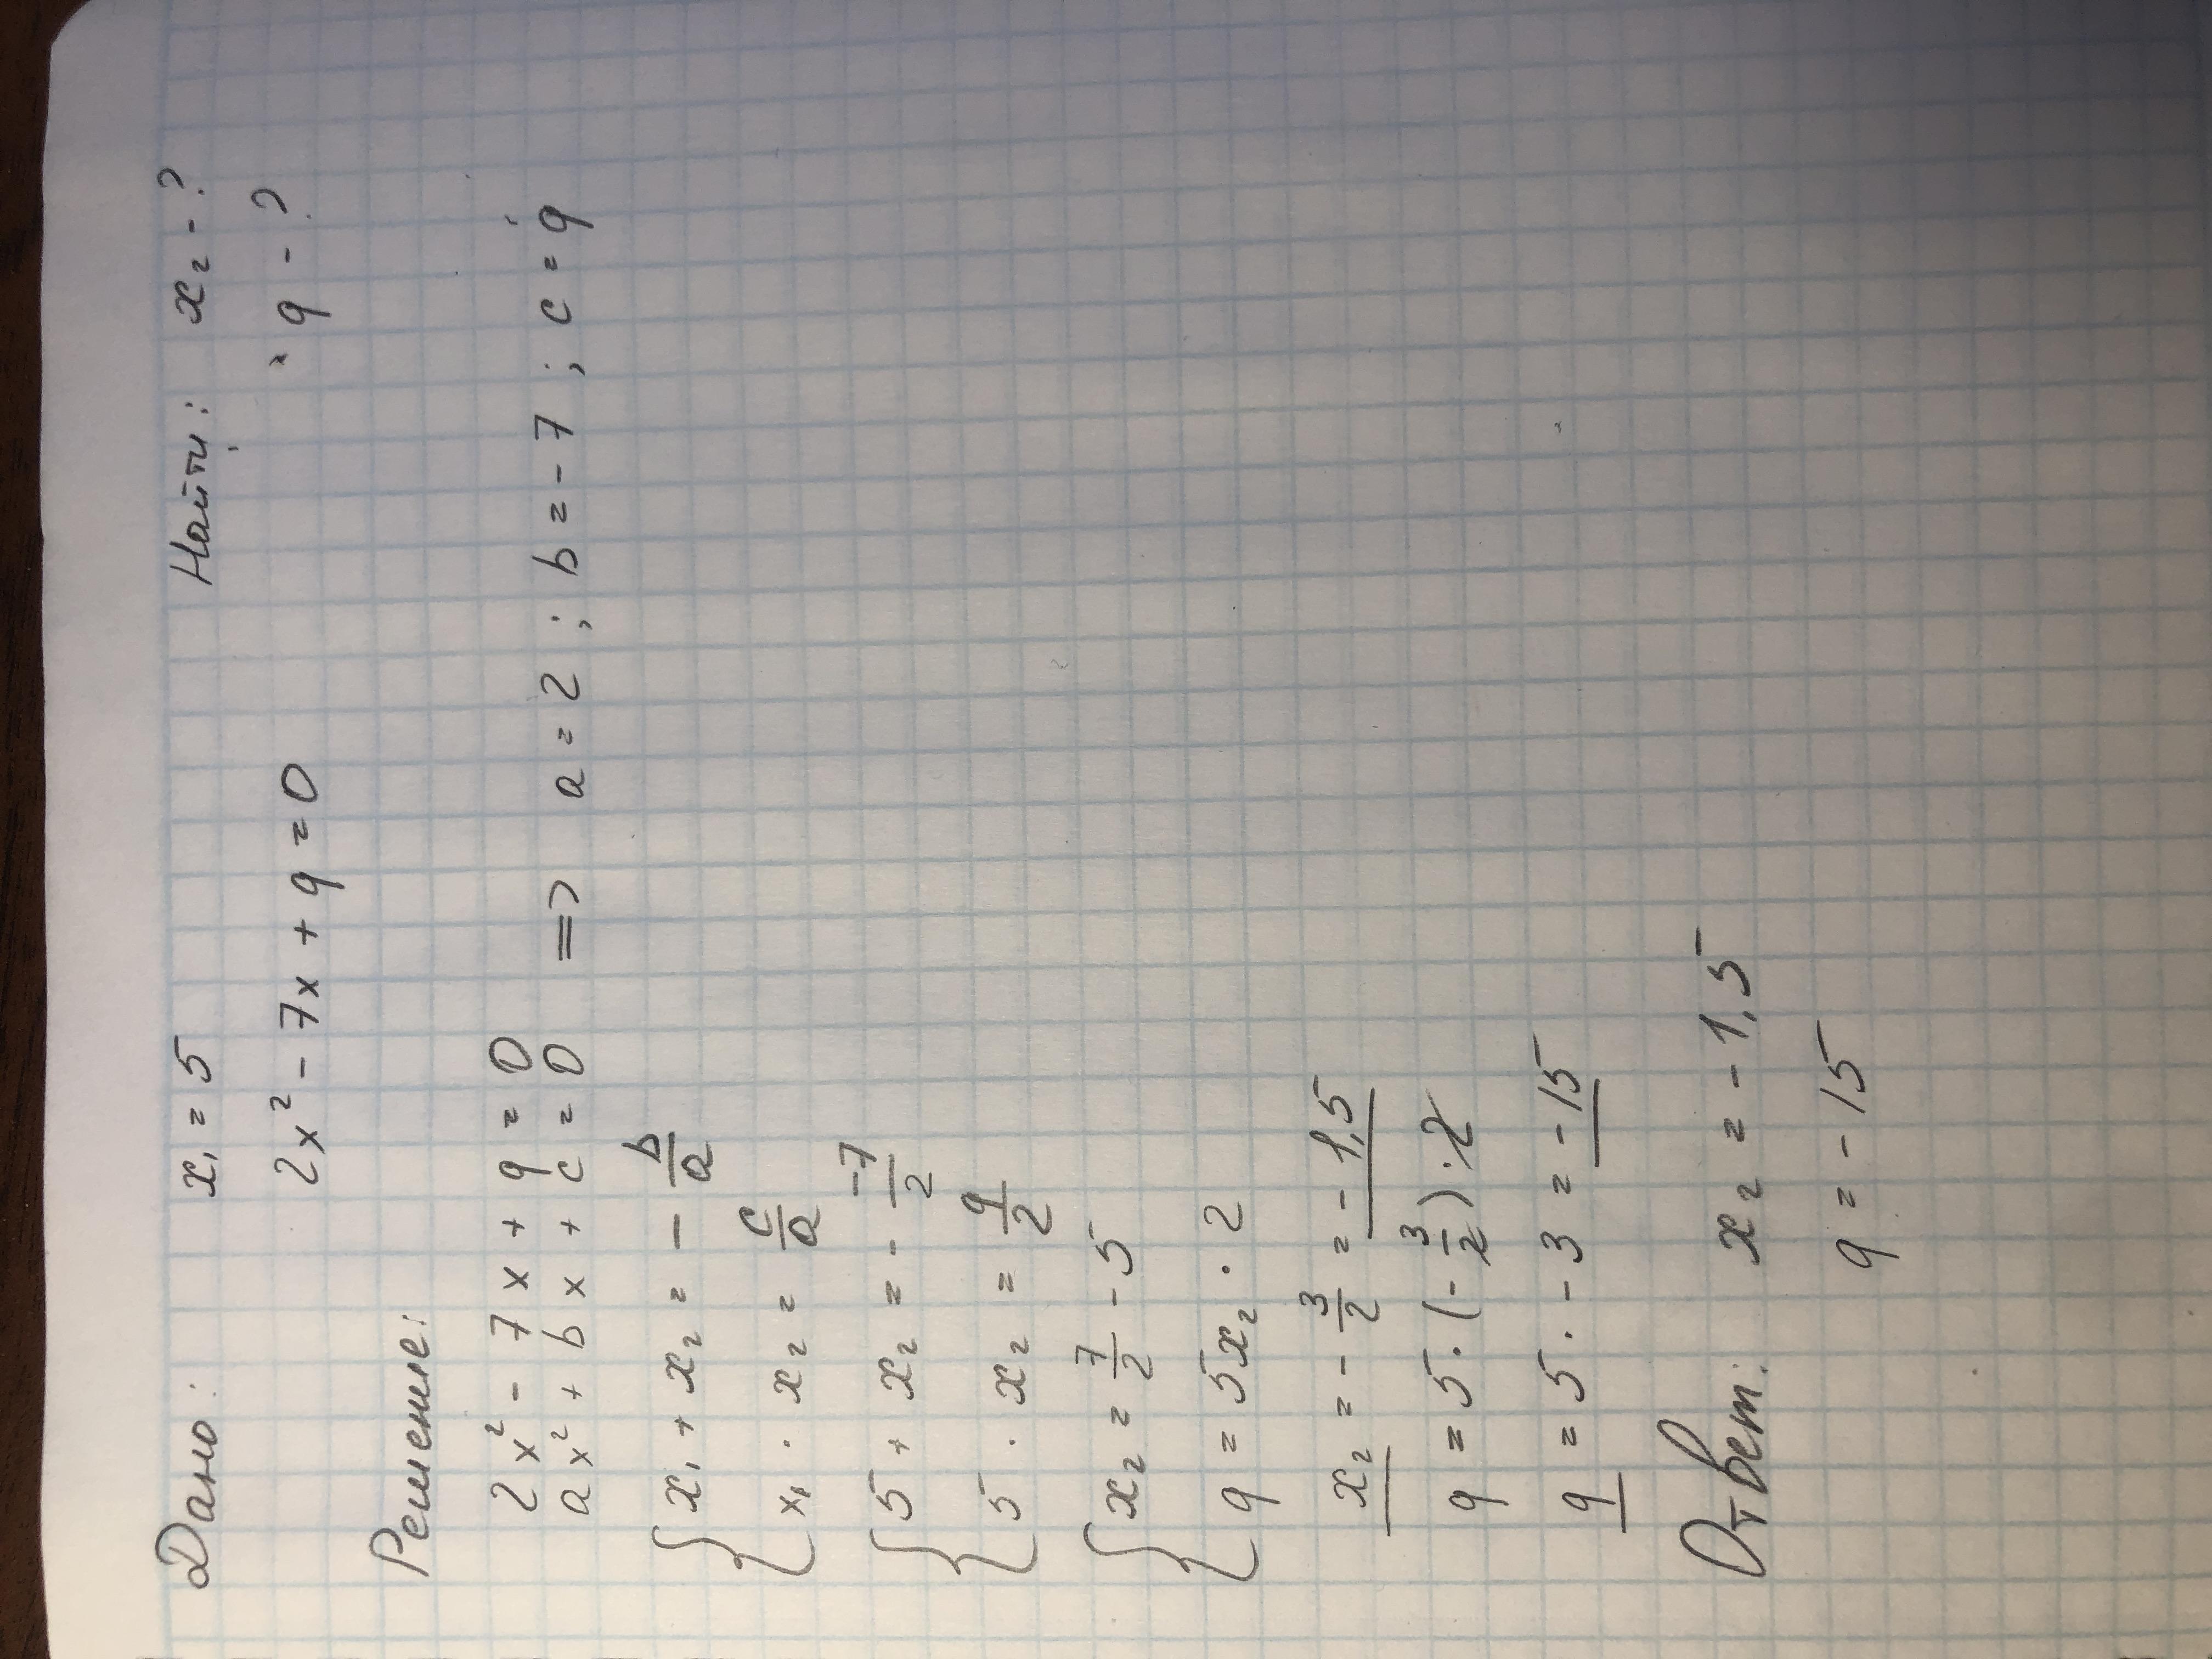 Дано: x₁ = 5 Найти: x₂ - ?
2x² - 7x + q = 0 q - ?
Решение:
2x² - 7x + q = 0
ax² + bx + c = 0 => a = 2; b = -7; c = q
{ x₁ + x₂ = - b/a
x₁ · x₂ = c/a
{ 5 + x₂ = - -7/2
5 · x₂ = q/2
{ x₂ = 7/2 - 5
q = 5x₂ · 2
x₂ = - 3/2 = -1,5
q = 5 · (- 3/2) · 2
q = 5 · -3 = -15
Ответ: x₂ = -1,5
q = -15